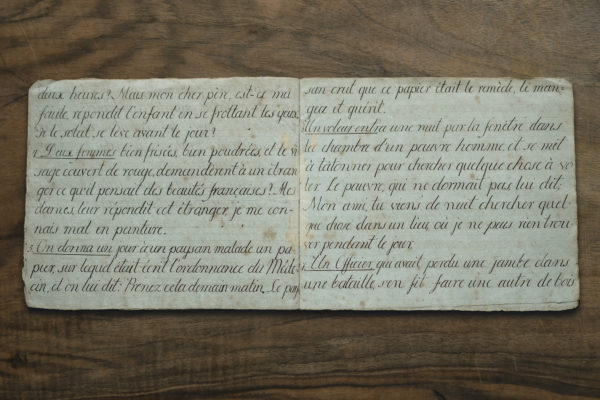 deux heures? Mais mon cher père, est-ce ma
faute, répondit l'enfant en se frottant les yeux,
Si le soleil se lève avant le jour?
Deux femmes bien frisées, bien poudrées, et le vi
sage couvert de rouge, demandèrent à un étran
ger ce qu'il pensait des beautés françaises? Mes
dames, leur répondit cet étranger, je me con-
nais mal en peinture.
On donna un jour à un paysan malade un pa-
pier, sur lequel était écrit l'ordonnance du Méde-
cin, et on lui dit: Prenez cela demain matin. Le pay
san crut que ce papier était le remède, le man-
gea et guérit.
Un voleur entra une nuit par la fenêtre dans
la chambre d'un pauvre homme et se mit
à tâtonner pour chercher quelque chose à vo
ler. Le pauvre, qui ne dormait pas lui dit,
Mon ami, tu viens de nuit chercher quel-
que chose dans un lieu, où je ne puis rien trou-
ver pendant le jour.
Un Officier qui avait perdu une jambe dans
une bataille, s'en fit faire une autre de bois